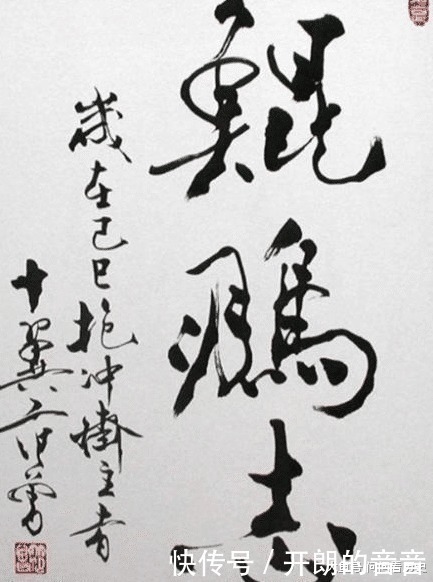 鯤鵬志
歲在己巳抱冲齋主者
十翼范曾
快传号 / 开朗的音音